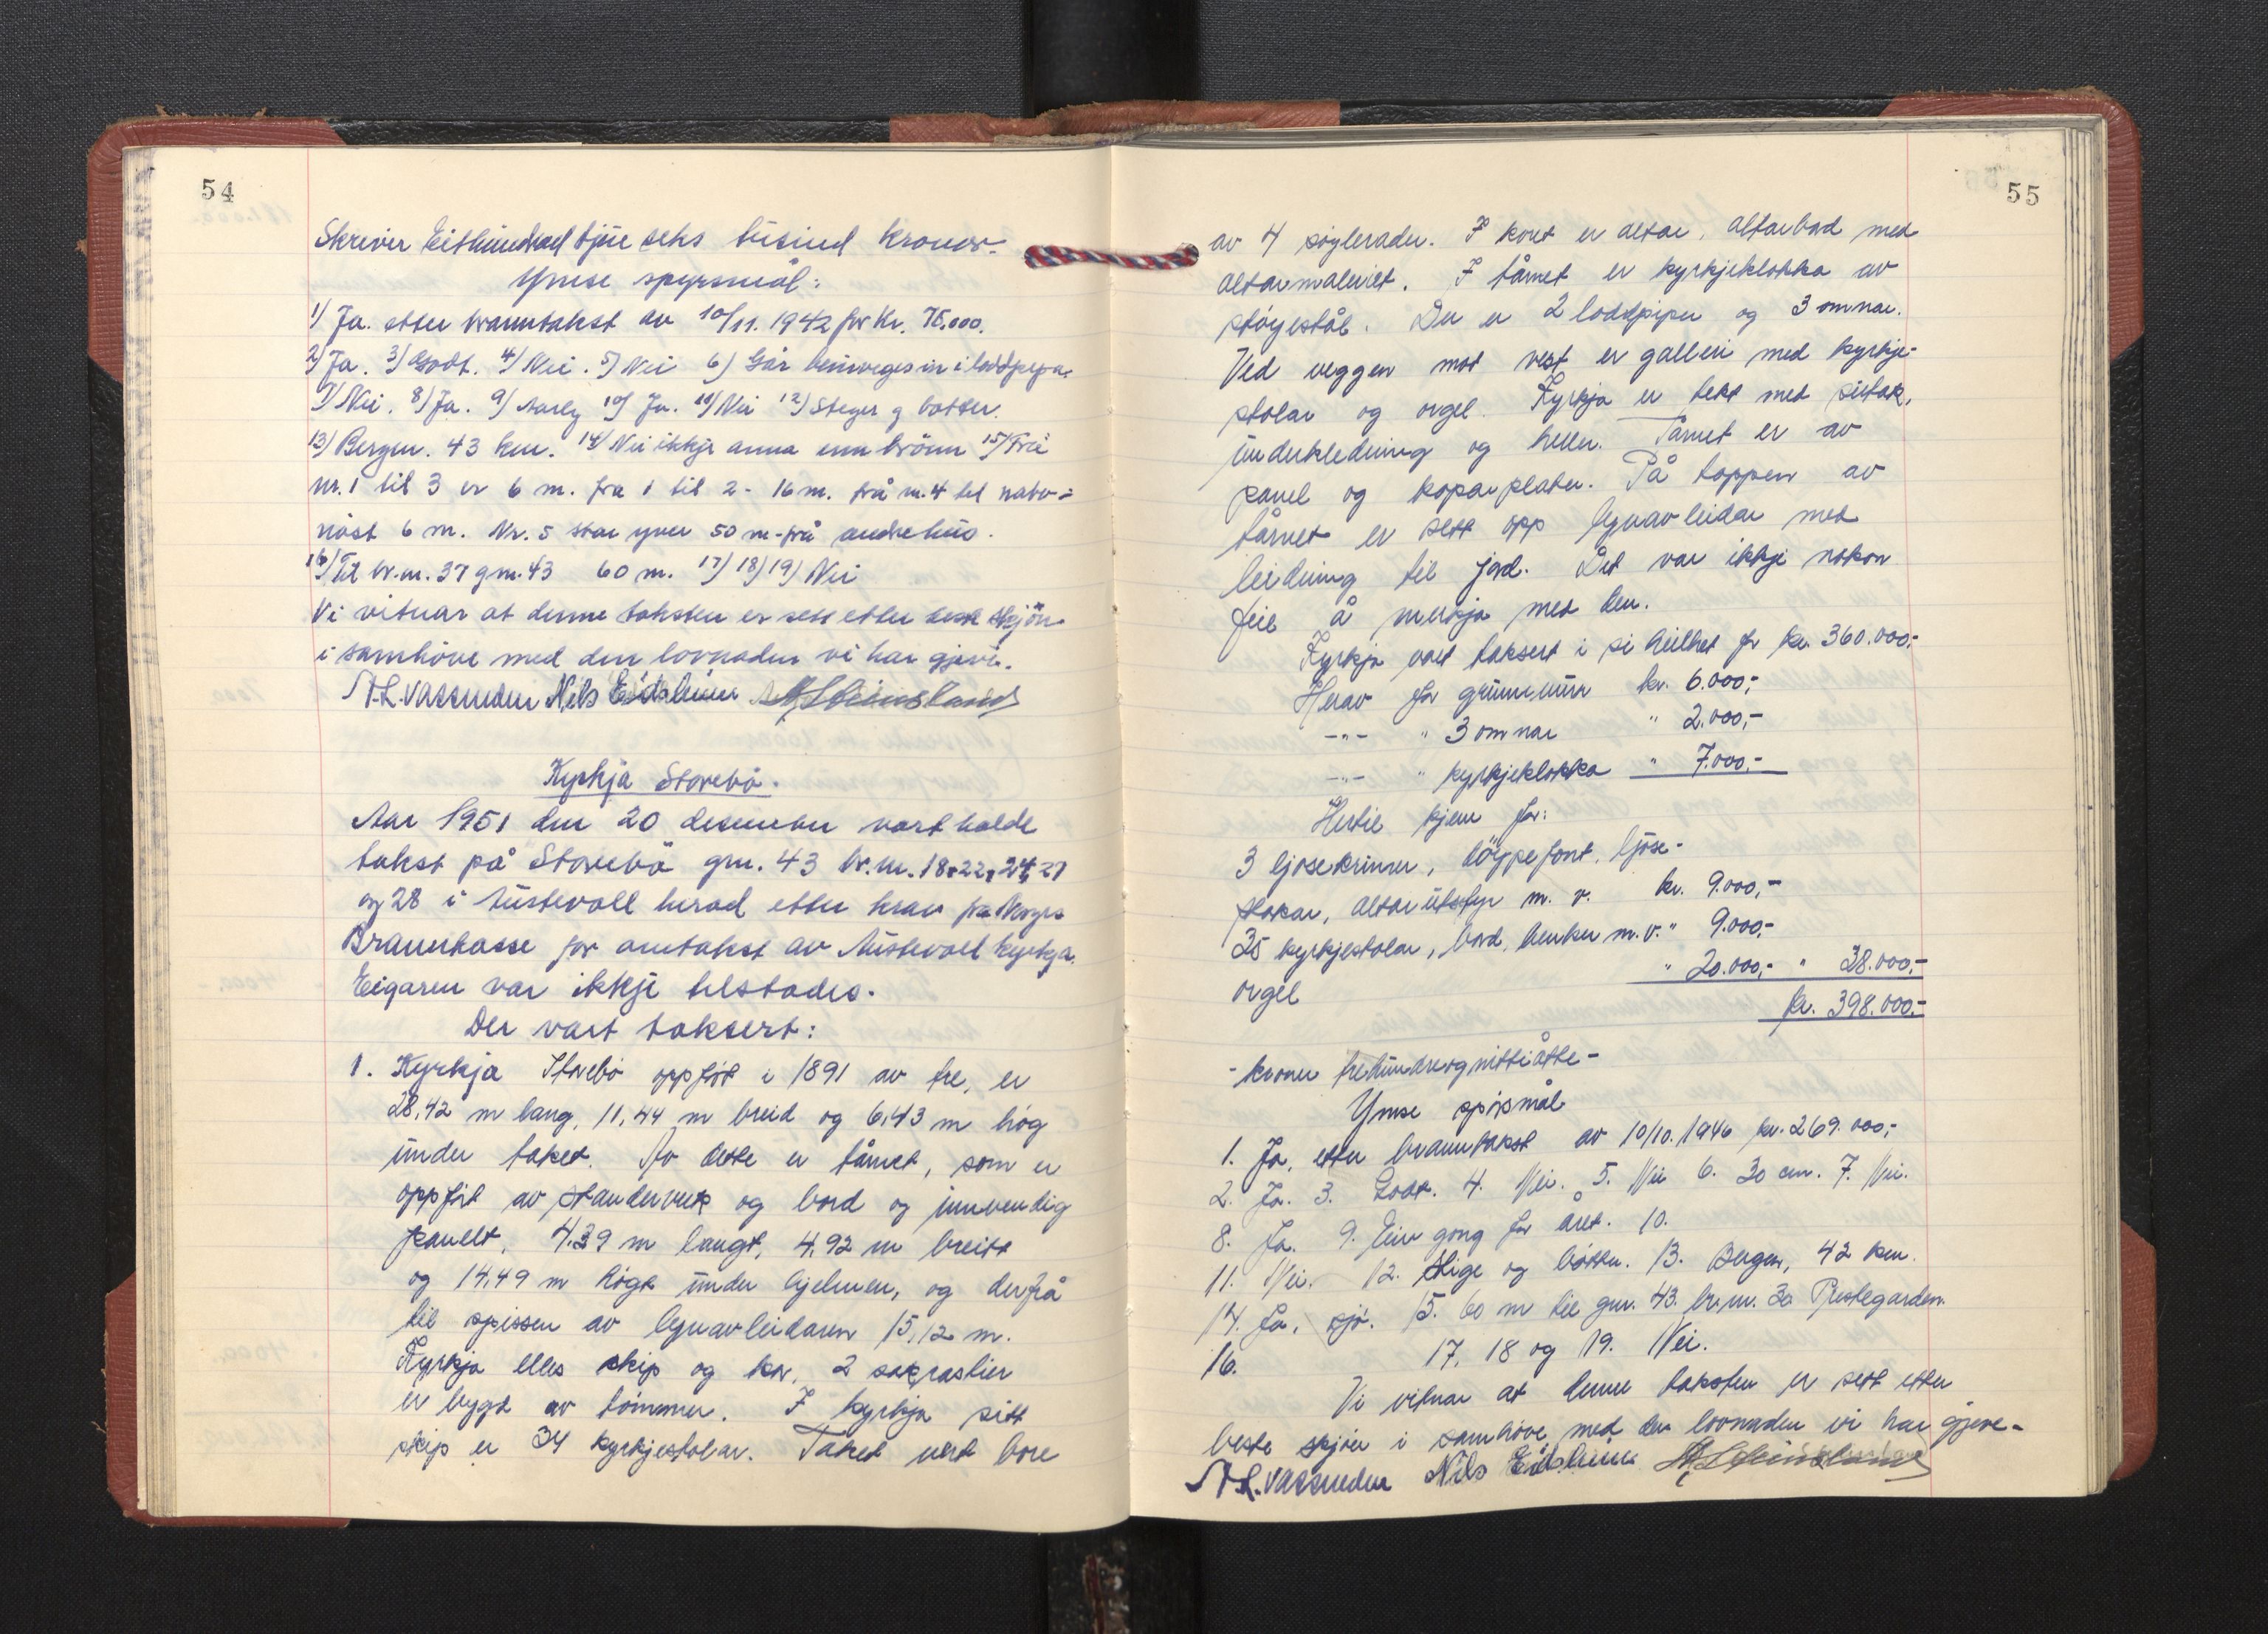 54
Skriver Eithundrad tjue seks tusind kroner-
Ymse spyrsmål:
1) Ja. etter branntakst av 10/11. 1942 for Kr. 75.000.
2) Ja. 3) Godt. 4) Nei. 5) Nei 6) Går beinveges in i loddpipa.
7) Nei. 8) Ja. 9) Aarleg 10) Ja. 11) Nei 12) Steger og bötter.
13) Bergen. 43 km. 14) Nei ikkje anna enn brönn 15) Frå
nr. 1 til 3 er 6 m. fra 1 til 2 - 16 m. frå nr. 4 til nabo-
nöst 6 m. Nr. 5 star yver 50 m - frå andre hus.
16) Til br.nr. 37 gnr. 43 60 m. 17) 18) 19) Nei
Vi vitnar at denne taksten er sett etter beste skjön
i samhöve med den lovnaden vi har gjeve.
N.L. Vassneden Nils Eidsheim
Kyrkja Storebö.
Aar 1951 den 20 desember vart halde
takst på Storebö gnr. 43 br.nr. 18, 22, 24, 27
og 28 i Austevoll herad etter krav fra Noregs
Brannkasse for omtakst av Austevoll kyrkja.
Eigaren var ikkje tilstades.
Der vart taksert:
1. Kyrkja Storebö oppfört i 1891 av tre, er
28,42 m lang, 11,44 m breid og 6,43 m hög
under taket. Av dette er tårnet, som er
oppfört av standerverk og bord og innvendig
panelt, 4.39 m langt, 4,92 m breitt
og 14,49 m högt under hjelmen, og derfrå
til spissen av lynavleidaren 15,12 m.
Kyrkja elles skip og kor, 2 sakrastier
er bygd av tömmer. I kyrkja sitt
skip er 34 kyrkjestolar. Taket vert bore
55
av 4 söylerader. I koret er altar, altarbord med
altarmaleriet. I tårnet er kyrkjeklokka av
stöypestål. Der er 2 loddpiper og 3 omnar.
Ved veggen mot vest er galleri med kyrkje-
stolar og orgel. Kyrkja er tekt med sutak,
underkledning og heller. Tårnet er av
panel og koparplater. På toppen av
tårnet er sett opp lynavleidar med
leidning til jord. Det var ikkje nokon
feil å merkja med den.
Kyrkja vart taksert i si heilhet for kr. 360.000,-
Herav for grunnmur kr. 6.000,-
-"- " 3 omnar " 2.000,-
-"- " kyrkjeklokka " 7.000,-
Hertil kjem for:
3 ljosekruner, döypefont, ljose-
stakar, altarutstyr m. v. kr. 9.000,-
35 kyrkjestolar, bord, benker m.v. " 9.000,-
orgel " 20.000,- " 38.000,-
kr. 398.000,-
- kroner trehundreognittiåtte -
Ymse spörsmål
1. Ja, etter branntakst av 10/10. 1946 kr. 269.000,-
2. Ja. 3. Godt. 4. Nei. 5. Nei 6. 30 cm. 7. Nei.
8. Ja. 9. Ein gong for året. 10.
11. Nei. 12. Stige og bötter. 13. Bergen, 42 km.
14. Ja, sjö. 15. 60 m til gnr. 43. br.nr. 30 Prestegarden.
16. 17, 18 og 19. Nei.
Vi vitnar at denne taksten er sett etter
beste skjön i samhöve med den lovnaden vi har gjeve-
N.L. Vassneden Nils Eidsheim